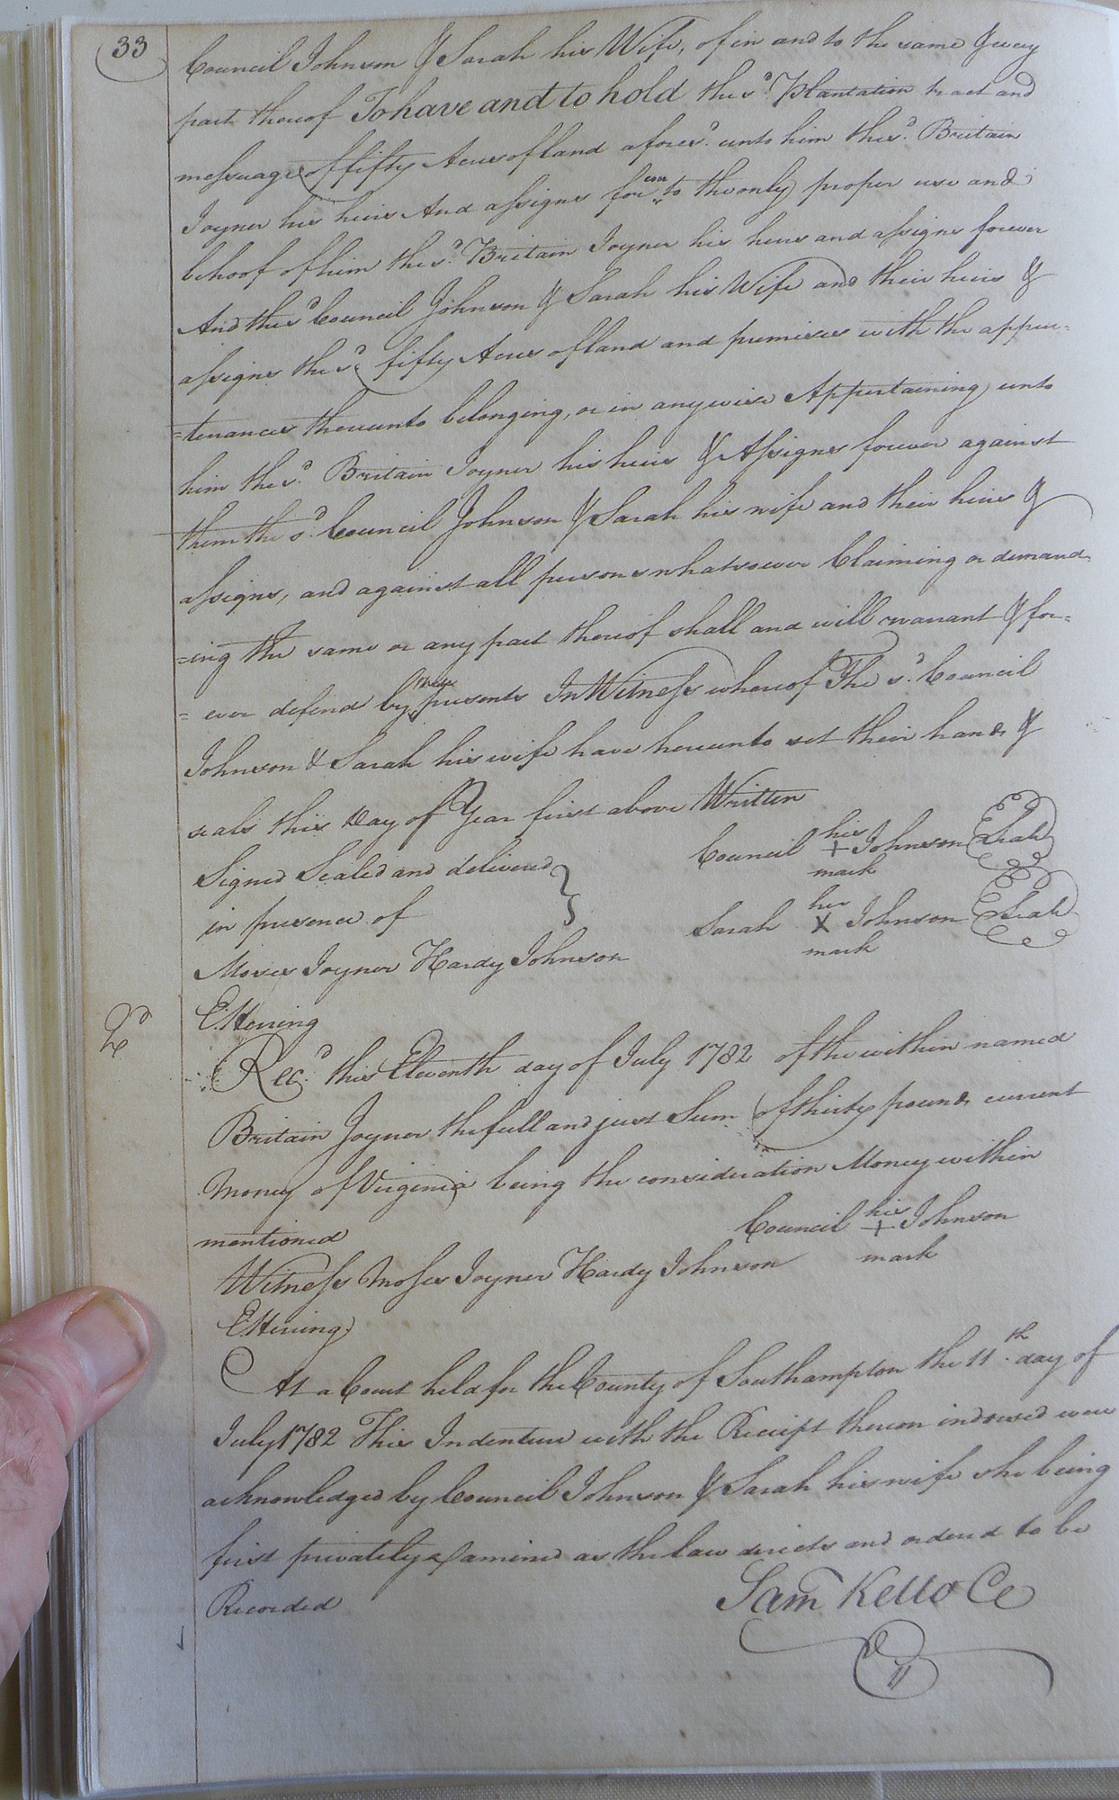 33
Council Johnson & Sarah his Wife, of in and to the same & every
part thereof To have and to hold the sd. Plantation tract and
messuage of fifty Acres of land aforesd. unto him the sd. Britain
Joyner his heirs And assigns forever to the only proper use and
behoof of him the sd. Britain Joyner his heirs and assigns forever
And the sd. Council Johnson & Sarah his Wife and their heirs &
assigns the sd. fifty Acres of land and premises with the appur=
=tenances thereunto belonging, or in anywise Appertaining unto
him the sd. Britain Joyner his heirs & Assigns forever against
them the sd. Council Johnson & Sarah his wife and their heirs &
assigns, and against all persons whatsoever Claiming or demand=
=ing the same or any part thereof shall and will warrant & for=
=ever defend by these presents In Witness whereof The sd. Council
Johnson & Sarah his wife have hereunto set their hands &
seals this Day & Year first above Written
Signed Sealed and delivered
in presence of
Council his + mark Johnson Seal
Sarah her X mark Johnson Seal
Moses Joyner Hardy Johnson
E. Herring
Recd. this Eleventh day of July 1782 of the within named
Britain Joyner the full and just Sum of thirty pounds current
Money of Virginia being the consideration Money within
mentioned
Council his + mark Johnson
Witness Moses Joyner Hardy Johnson
E Herring
At a Court held for the County of Southampton the 11th. day of
July 1782 This Indenture with the Receipt thereon indorsed were
acknowledged by Council Johnson & Sarah his wife she being
first privately examined as the law directs and ordered to be
Recorded
Sam Kello Cc